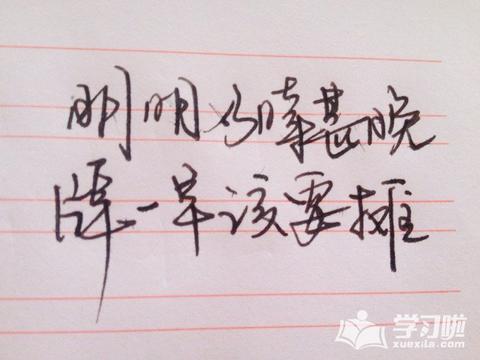 明明 甚晚
牌一早该要摊
学习啦
xuexila.com